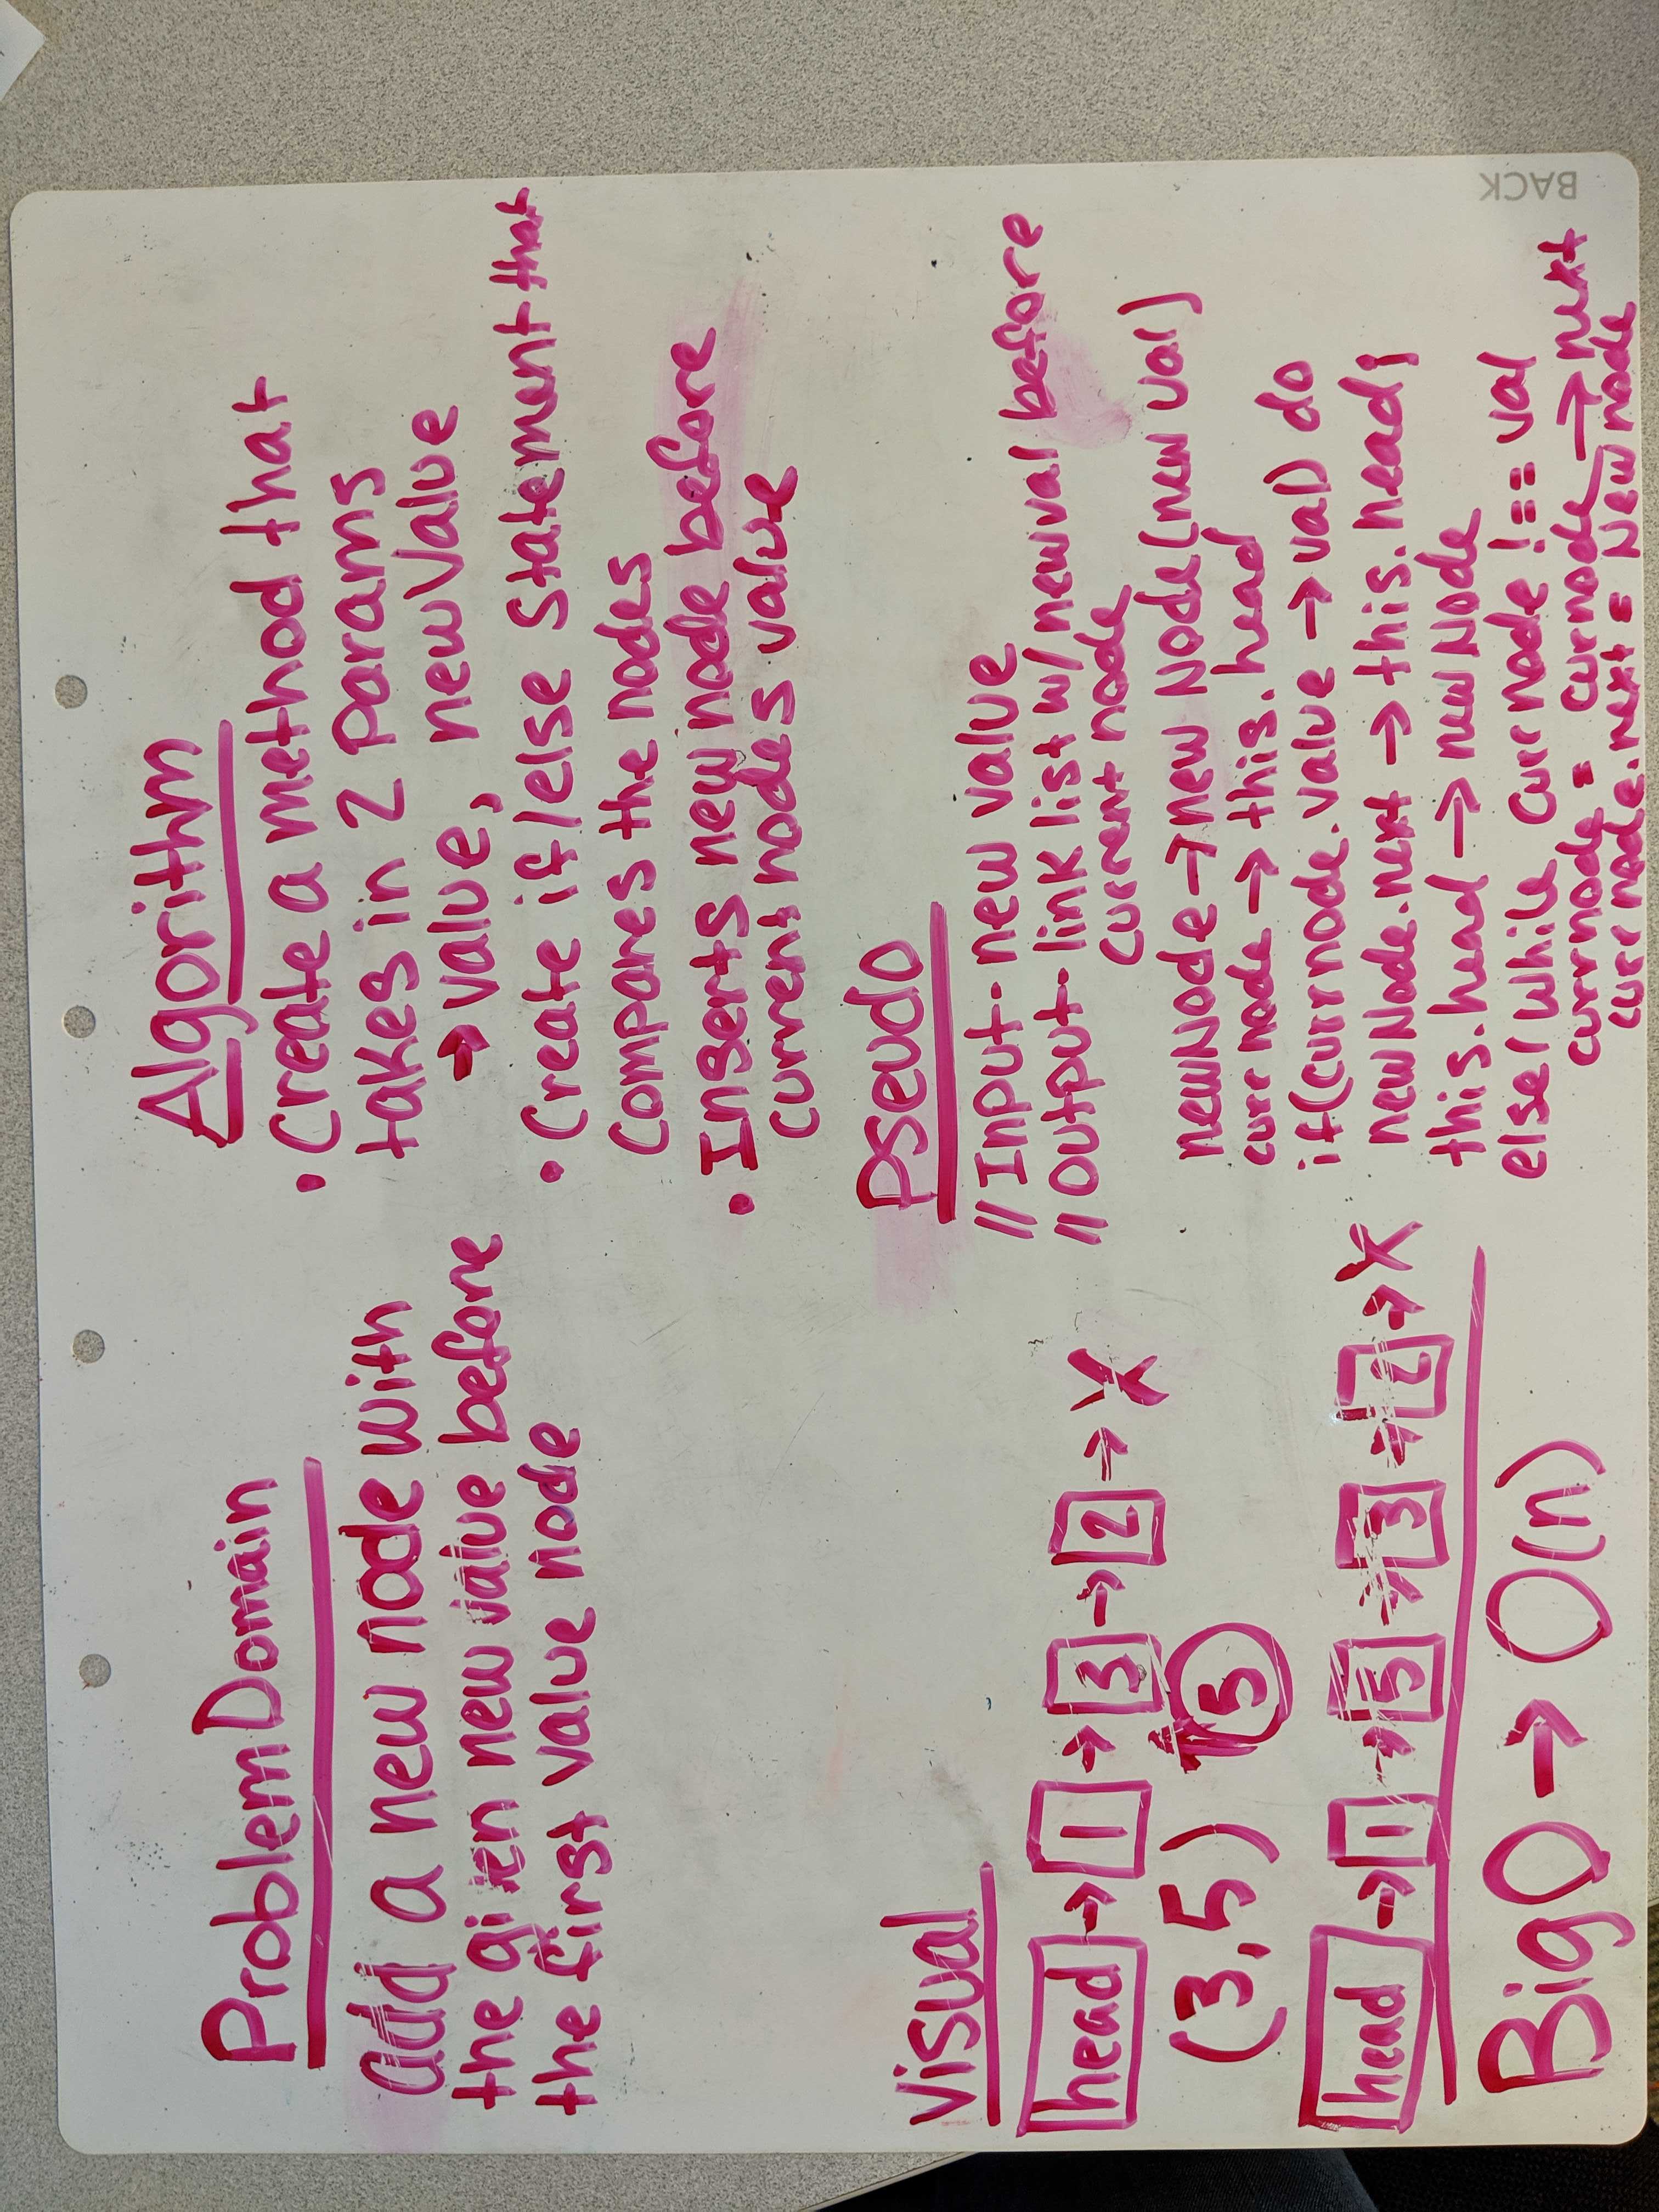 Problem Domain
Add a new node with
the given new value before
the first value node
Algorithm
• Create a method that
takes in 2 params
→ value, newValue
• Create if/else statement that
compares the nodes
• Inserts new node before
current nodes value
Visual
head → 1 → 3 → 2 → X
(3,5) 5
head → 1 → 5 → 3 → 2 → X
Big O → O(n)
Pseudo
// Input - new value
// output - link list w/ newval before
current node
newNode → new Node(new val)
curr node → this.head
if(currnode.value → val) do
newNode.next → this.head;
this.head → newNode
else/while currnode !== val
currnode = currnode → next
currnode.next = Newnode
BACK